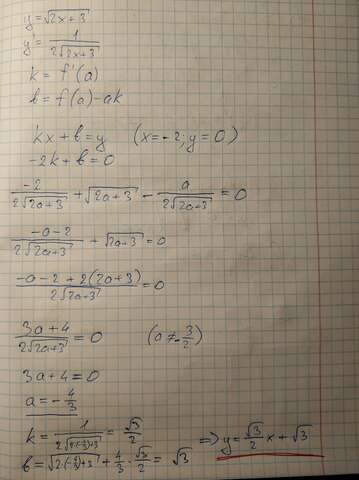 y = √(2x + 3)
y' = 1/(2√(2x+3))
k = f'(a)
b = f(a) - ak
kx + b = y (x = -2; y = 0)
-2k + b = 0
-2/(2√(2a+3)) + √(2a+3) - a/(2√(2a+3)) = 0
(-a-2)/(2√(2a+3)) + √(2a+3) = 0
(-a-2+2(2a+3))/(2√(2a+3)) = 0
(3a+4)/(2√(2a+3)) = 0 (a ≠ -3/2)
3a+4=0
a = -4/3
k = 1/(2√(2·(-4/3)+3)) = √3/2
b = √(2·(-4/3)+3) + 4/3 · √3/2 = √3 => y = √3/2 x + √3